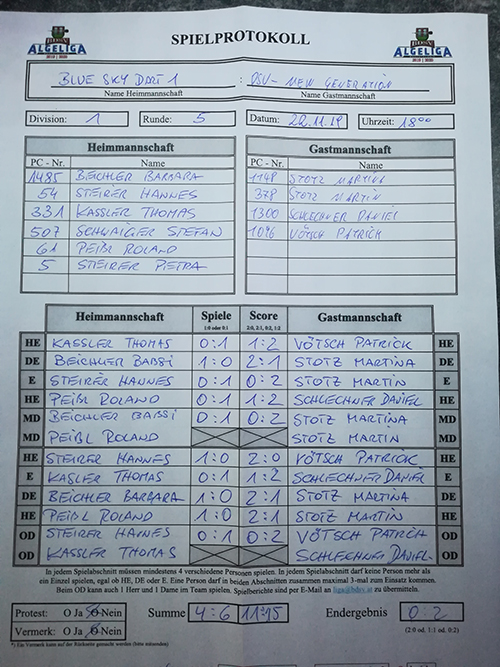 ALGELIGA
2019 | 2020
SPIELPROTOKOLL
ALGELIGA
2019 | 2020
BLUE SKY DART 1 : DSV - NEW GENERATION
Name Heimmannschaft Name Gastmannschaft
Division: 1 Runde: 5 Datum: 22.11.19 Uhrzeit: 18⁰⁰
Heimmannschaft Gastmannschaft
PC - Nr. Name PC - Nr. Name
1485 BEICHLER BARBARA 1148 STOTZ MARTINA
54 STEIRER HANNES 378 STOTZ MARTIN
331 KASSLER THOMAS 1300 SCHLECHNER DANIEL
507 SCHWAIGER STEFAN 1096 VÖTSCH PATRICK
61 PEIßL ROLAND
5 STEIRER PETRA
Heimmannschaft Spiele Score Gastmannschaft
1:0 oder 0:1 2:0, 2:1, 0:2, 1:2
HE KASSLER THOMAS 0:1 1:2 VÖTSCH PATRICK HE
DE BEICHLER BABSI 1:0 2:1 STOTZ MARTINA DE
E STEIRER HANNES 0:1 0:2 STOTZ MARTIN E
HE PEIßL ROLAND 0:1 1:2 SCHLECHNER DANIEL HE
MD BEICHLER BABSI 0:1 0:2 STOTZ MARTINA MD
MD PEIßL ROLAND STOTZ MARTIN MD
HE STEIRER HANNES 1:0 2:0 VÖTSCH PATRICK HE
E KASLER THOMAS 0:1 1:2 SCHLECHNER DANIEL E
DE BEICHLER BARBARA 1:0 2:1 STOTZ MARTINA DE
HE PEIßL ROLAND 1:0 2:1 STOTZ MARTIN HE
OD STEIRER HANNES 0:1 0:2 VÖTSCH PATRICH OD
OD KASSLER THOMAS SCHLECHNER DANIEL OD
In jedem Spielabschnitt müssen mindestens 4 verschiedene Personen spielen. In jedem Spielabschnitt darf keine Person mehr als
ein Einzel spielen, egal ob HE, DE oder E. Eine Person darf in beiden Abschnitten zusammen maximal 3-mal zum Einsatz kommen.
Beim OD kann auch 1 Herr und 1 Dame im Team spielen. Spielberichte sind per E-Mail an liga@bdsv.st zu übermitteln.
Protest: O Ja O Nein Summe 4:6 11:15 Endergebnis 0:2
Vermerk: O Ja O Nein (2:0 od. 1:1 od. 0:2)
*) Ein Vermerk kann auf der Rückseite gemacht werden (bitte mitsenden)